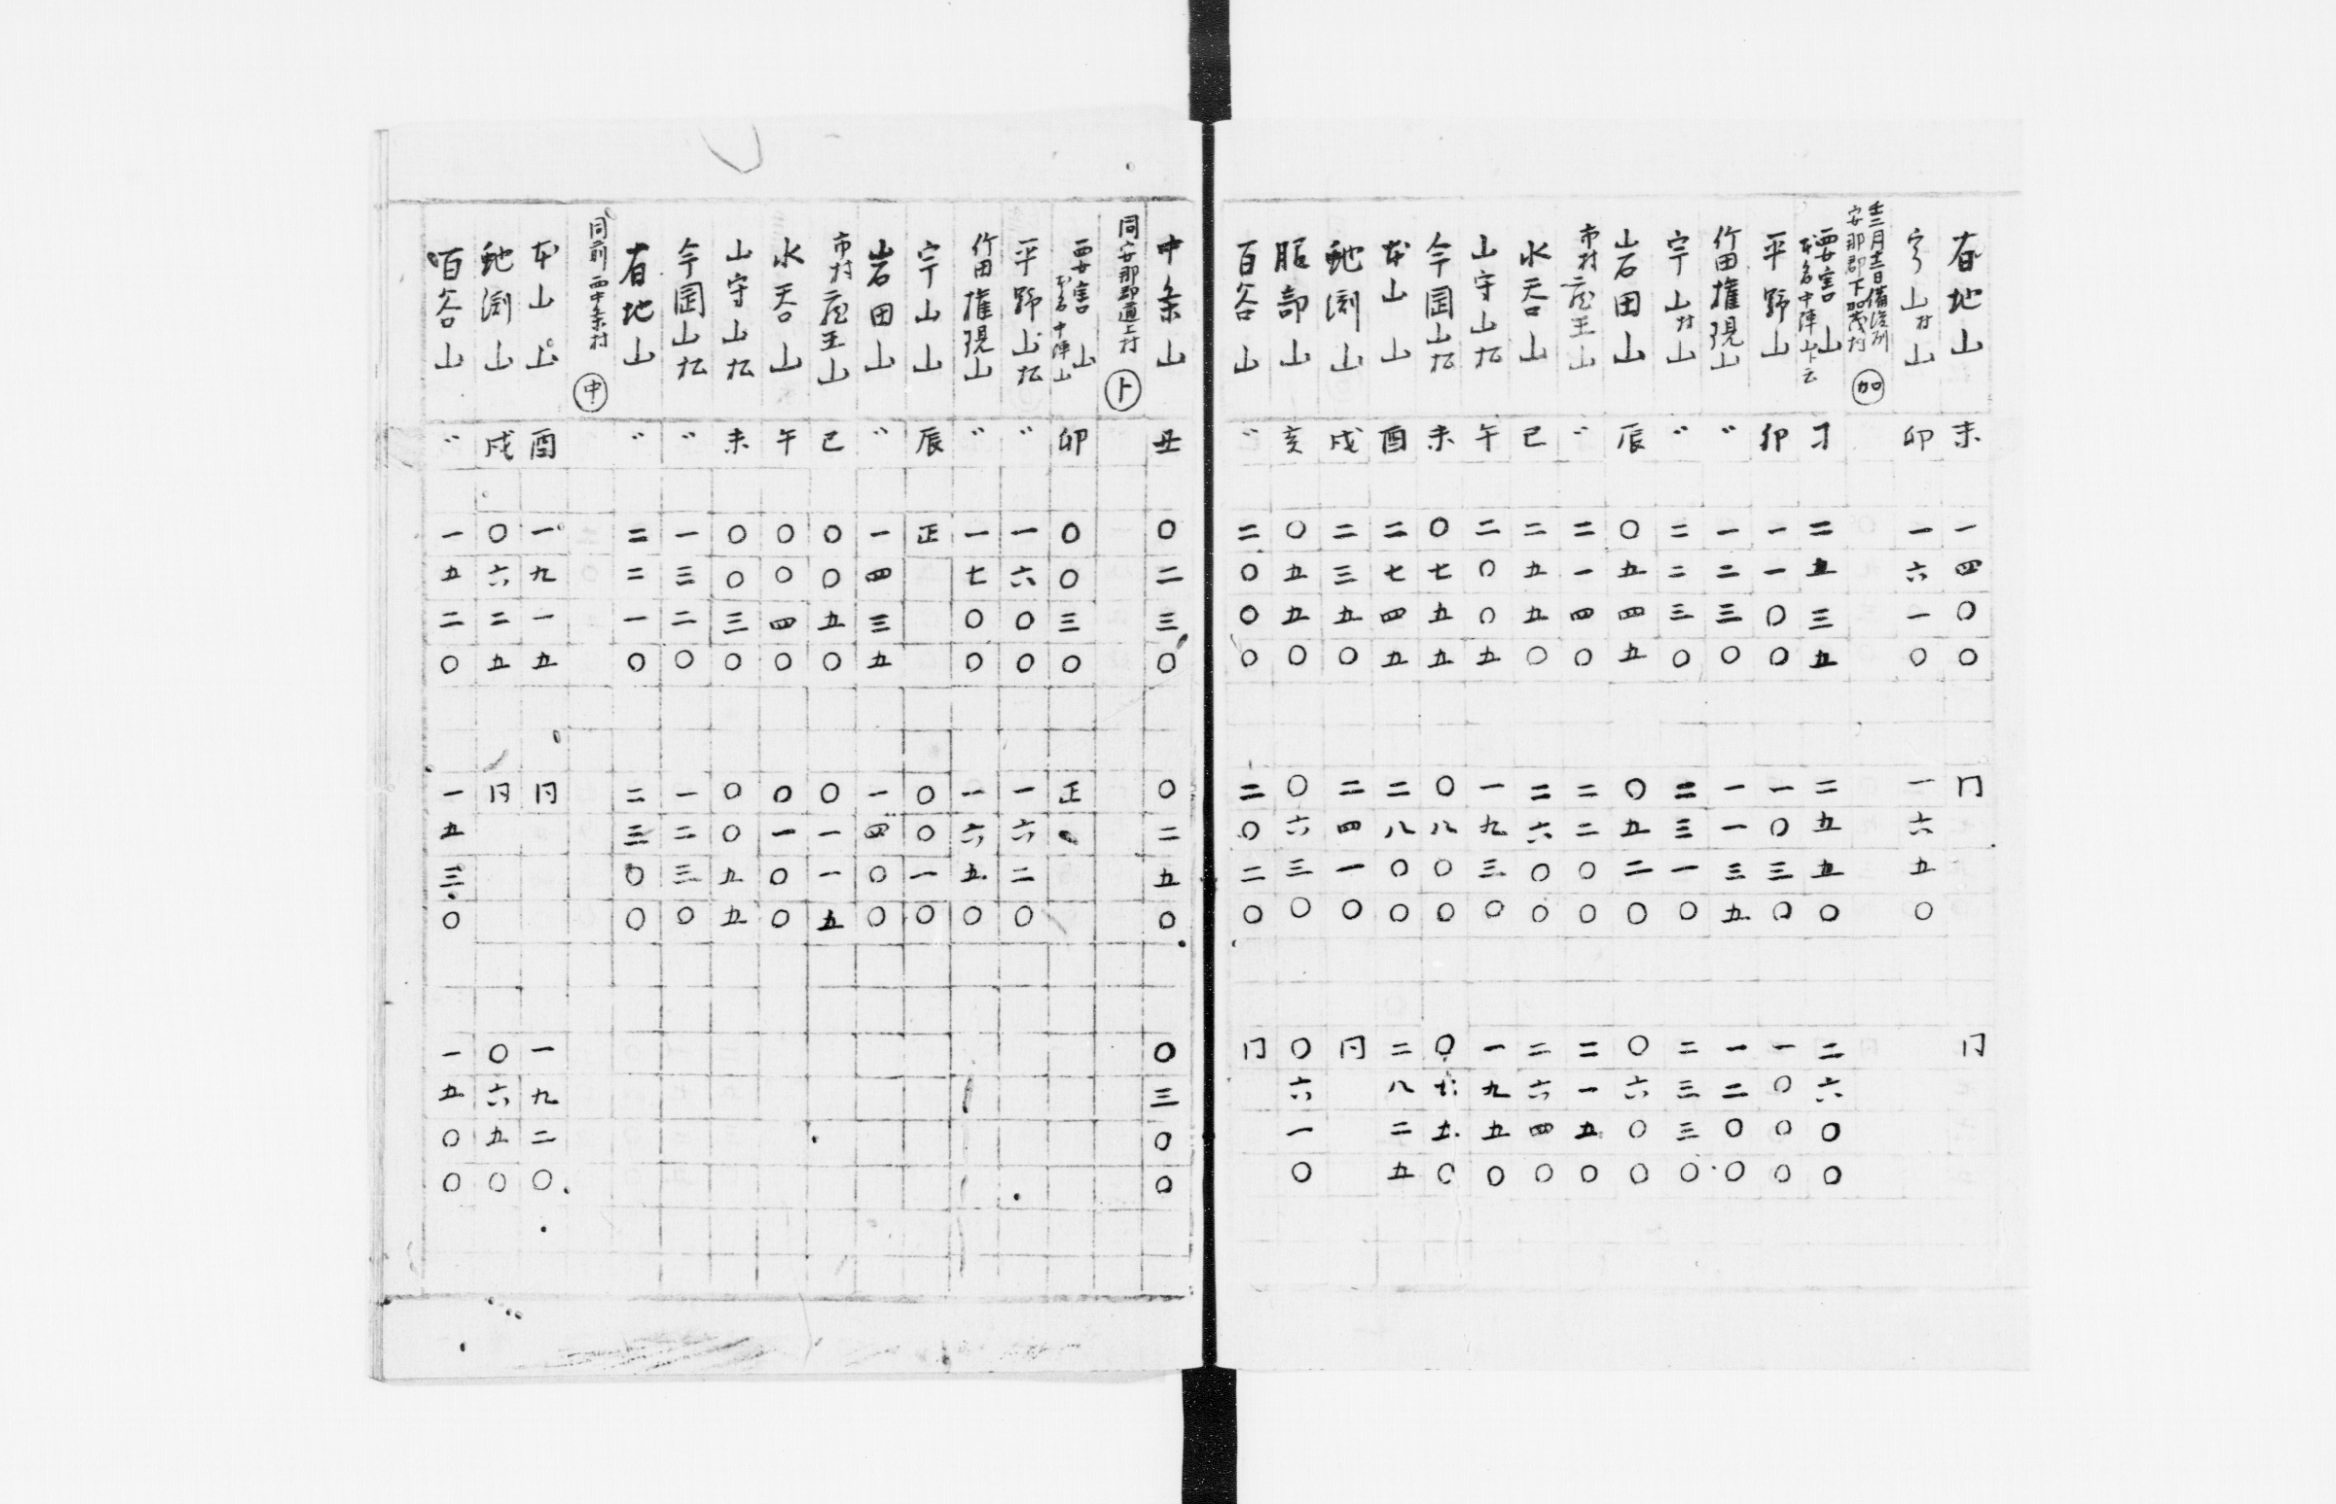 有地山 未 一四〇〇 冂 冂
宇山村山 卯 一六一〇 一六五〇
壬三月十三日備後州
安那郡下加茂村 加
要害山 本名中陣山ト云 寅 二五三五 二五五〇 二六〇〇
平野山 卯 一一〇〇 一〇三〇 一〇〇〇
竹田権現山 〃 一二三〇 一一三五 一二〇〇
宇山村山 〃 二二三〇 二三一〇 二三三〇
岩田山 辰 〇五四五 〇五二〇 〇六〇〇
市村蔵王山 〃 二一四〇 二二〇〇 二一五〇
水呑山 巳 二五五〇 二六〇〇 二六四〇
山守山 午 二〇〇五 一九三〇 一九五〇
今岡山 未 〇七五五 〇八〇〇 〇七五〇
本山山 酉 二七四五 二八〇〇 二八二五
虵渕山 戌 二三五〇 二四一〇 冂
服部山 亥 〇五五〇 〇六三〇 〇六一〇
百谷山 〃 二〇〇〇 二〇二〇 冂
中条山 丑 〇二三〇 〇二五〇 〇三〇〇
同安那郡道上村 ト
要害山 本名中陣山 卯 〇〇三〇 正
平野山 〃 一六〇〇 一六二〇
竹田権現山 〃 一七〇〇 一六五〇
宇山山 辰 正 〇〇一〇
岩田山 〃 一四三五 一四〇〇
市村蔵王山 巳 〇〇五〇 〇一一五
水呑山 午 〇〇四〇 〇一〇〇
山守山 未 〇〇三〇 〇〇五五
今岡山 〃 一三二〇 一二三〇
有地山 〃 二二一〇 二三〇〇
同前 西中条村 中
本山山 酉 一九一五 冂 一九二〇
虵渕山 戌 〇六二五 冂 〇六五〇
百谷山 〃 一五二〇 一五三〇 一五〇〇